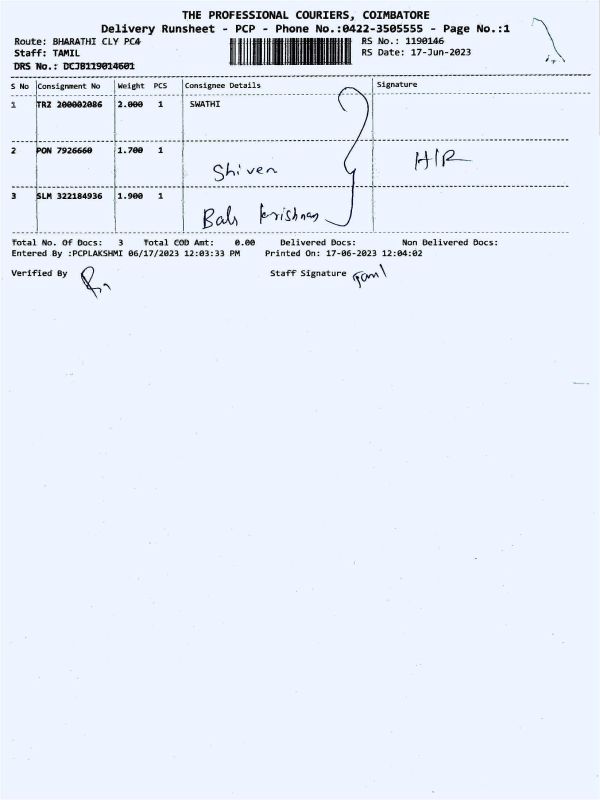 THE PROFESSIONAL COURIERS, COIMBATORE
Delivery Runsheet - PCP - Phone No.:0422-3505555 - Page No.:1
Route: BHARATHI CLY PC4 RS No.: 1190146
Staff: TAMIL RS Date: 17-Jun-2023
DRS No.: DCJB119014601
S No Consignment No Weight PCS Consignee Details Signature
1 TRZ 200002086 2.000 1 SWATHI
2 PON 7926660 1.700 1 Shiven H/R
3 SLM 322184936 1.900 1 Bala krishnan
Total No. Of Docs: 3 Total COD Amt: 0.00 Delivered Docs: Non Delivered Docs:
Entered By :PCPLAKSHMI 06/17/2023 12:03:33 PM Printed On: 17-06-2023 12:04:02
Verified By Staff Signature Tamil